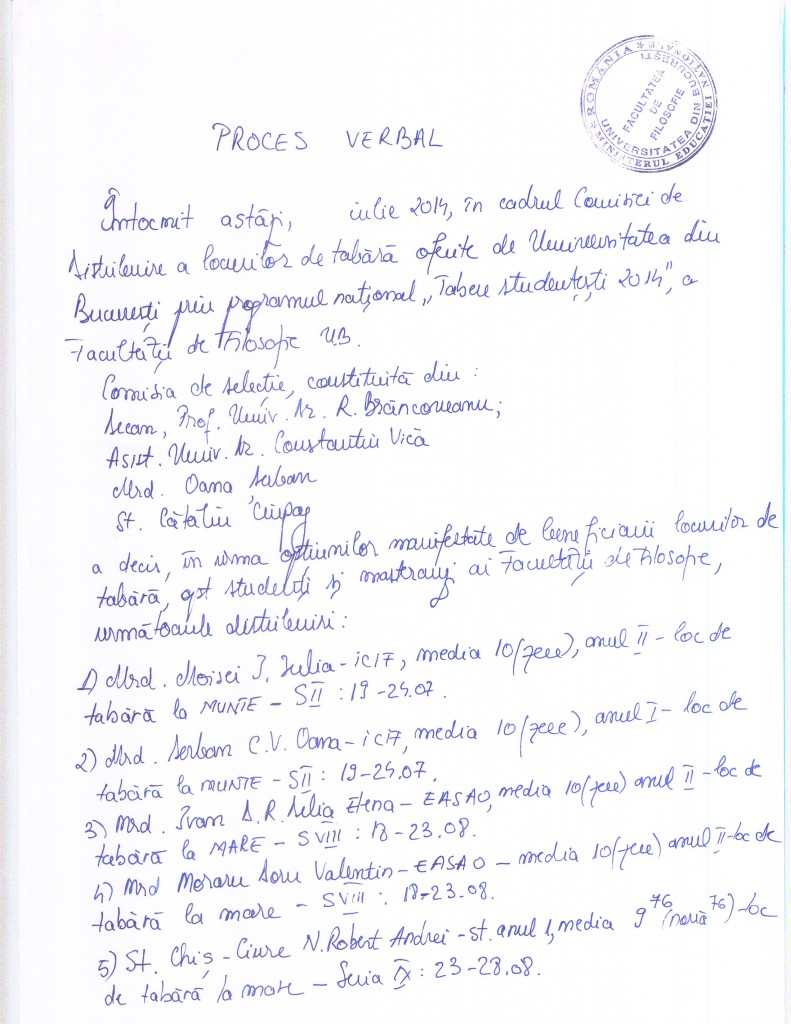 ROMÂNIA * MINISTERUL EDUCAȚIEI NAȚIONALE *
UNIVERSITATEA DIN BUCUREȘTI
FACULTATEA
DE
FILOSOFIE
PROCES VERBAL
Întocmit astăzi, iulie 2014, în cadrul Comisiei de
distribuire a locurilor de tabără oferite de Universitatea din
București prin programul național „Tabere studențești 2014", a
Facultății de Filosofie UB.
Comisia de selecție, constituită din :
Decan, Prof. Univ. Dr. R. Brâncoveanu;
Asist. Univ. Dr. Constantin Vică
Mrd. Oana Șerban
St. Cătălin
a decis, în urma opțiunilor manifestate de beneficiarii locurilor de
tabără, studenți și masteranzi ai Facultății de Filosofie,
următoarele distribuiri :
1) Mrd. Moisei J. Iulia - ICIF, media 10 (zece), anul II - loc de
tabără la MUNTE - SII : 19 - 24.07.
2) Mrd. Șerban C.V. Oana - ICIF, media 10 (zece), anul I - loc de
tabără la MUNTE - SII : 19-24.07.
3) Mrd. Ivan D.R. Delia Elena - EASAO, media 10 (zece) anul II - loc de
tabără la MARE - SVIII : 18 - 23.08.
4) Mrd Moraru Doru Valentin - EASAO - media 10 (zece) anul II - loc de
tabără la mare - SVIII : 18-23.08.
5) St. Chiș - Ciure N. Robert Andrei - st. anul 1, media 9 76 (nouă 76) - loc
de tabără la mare - Seria IX : 23 - 28.08.